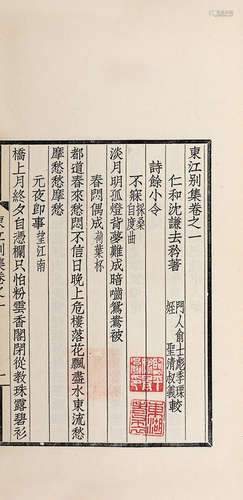 東江别集卷之一
仁和沈謙去矜著
門人俞士彪季瑮較
姪 聖清叔義
詩餘小令
不寐 採桑 自度曲
淡月明孤燈背夢難成暗嚙鴛鴦破
春悶偶成 荷葉杯
都道春來愁悶不信日晚上危樓落花飄盡水東流愁
摩愁愁摩愁
元夜即事 望江南
橋上月終夕自憑欄只怕粉雲香閣閉從教珠露碧衫
東江别集卷之一
一